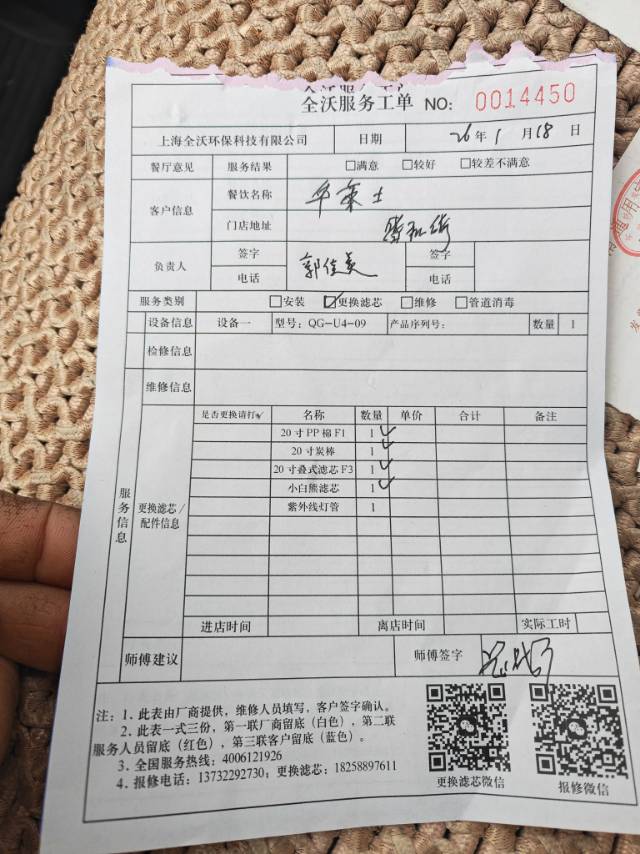 全沃服务工单 NO: 0014450
上海全沃环保科技有限公司 日期 26年1月18日
餐厅意见 服务结果 □满意 □较好 □较差不满意
客户信息 餐饮名称 华莱士
门店地址
负责人 签字 郭佳美 签字
电话 电话
服务类别 □安装 ☑更换滤芯 □维修 □管道消毒
设备信息 设备一 型号: QG-U4-09 产品序列号: 数量 1
检修信息
维修信息
服务信息
更换滤芯/配件信息
是否更换请打✓ 名称 数量 单价 合计 备注
20寸PP棉F1 1 ✓
20寸炭棒 1 ✓
20寸叠式滤芯F3 1 ✓
小白熊滤芯 1 ✓
紫外线灯管 1
进店时间 离店时间 实际工时
师傅建议 师傅签字
注: 1. 此表由厂商提供, 维修人员填写, 客户签字确认。
2. 此表一式三份, 第一联厂商留底(白色), 第二联
服务人员留底(红色), 第三联客户留底(蓝色)。
3. 全国服务热线: 4006121926
4. 报修电话: 13732292730; 更换滤芯: 18258897611
更换滤芯微信 报修微信